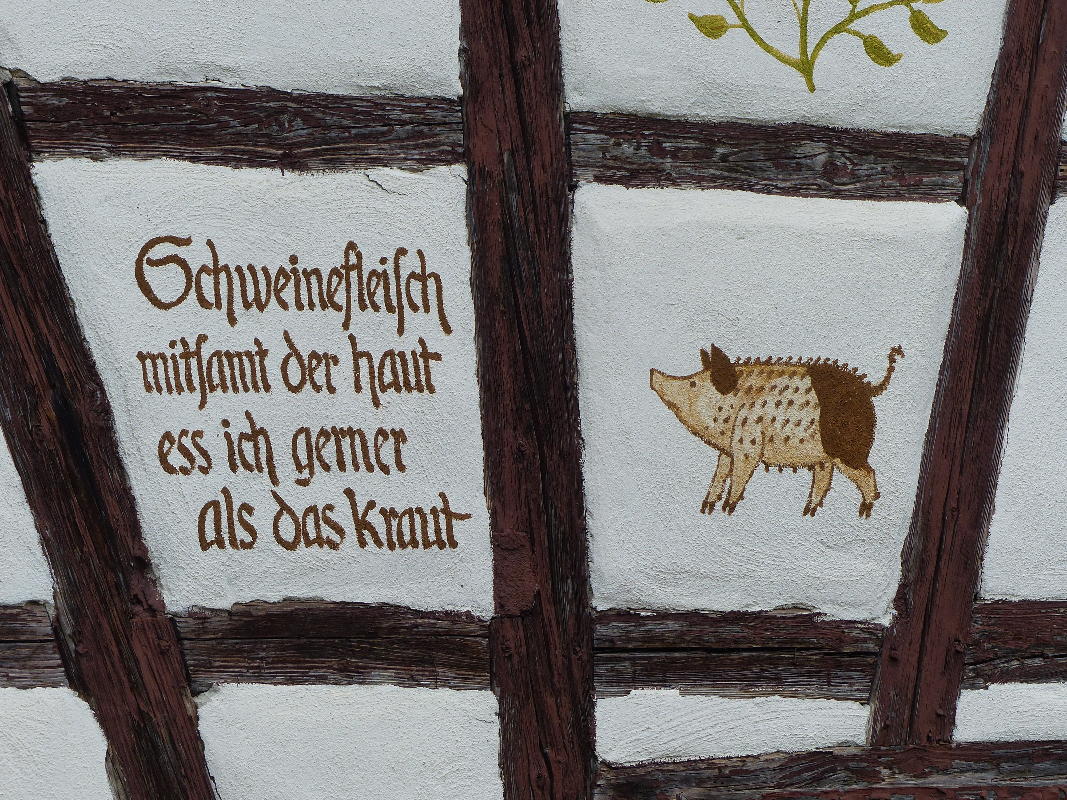 Schweinefleiſch
mitſamt der haut
ess ich gerner
als das kraut